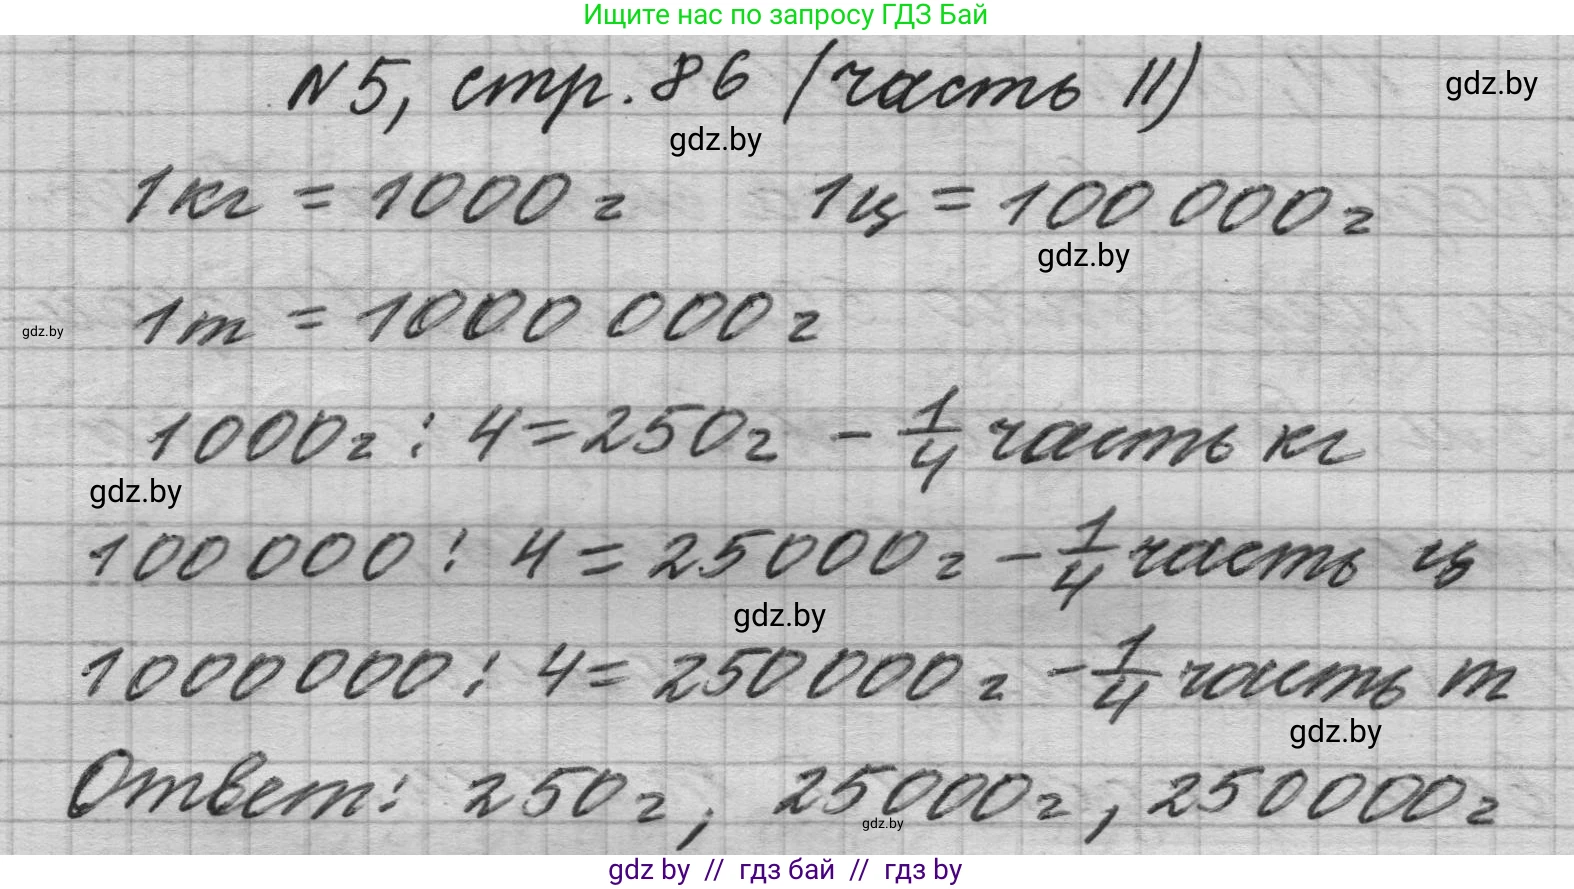 Ищите нас по запросу ГДЗ Бай
N5, стр. 86 (часть II)
gdz.by
gdz.by
1кг = 1000 г 1ц = 100 000 г
gdz.by
1т = 1000 000 г
gdz.by
1000г : 4 = 250г - 1/4 часть кг
gdz.by
100 000 : 4 = 25000 г - 1/4 часть ц
gdz.by
1000 000 : 4 = 250 000 г - 1/4 часть т
gdz.by
Ответ: 250 г, 25000 г, 250 000 г
gdz.by
gdz by // гдз бай // гдз by